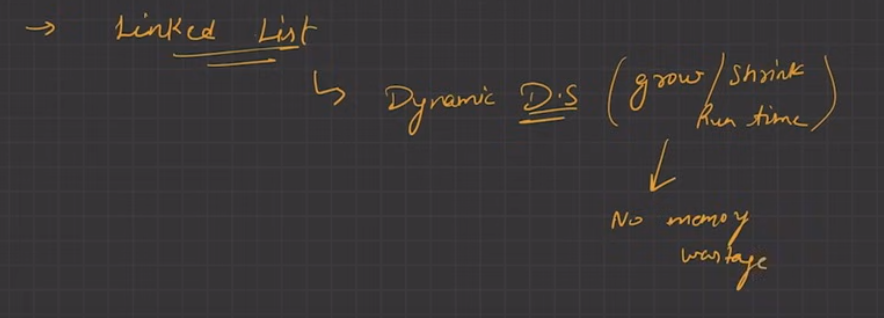 → Linked List
↳ Dynamic D.S (grow/shrink
Run time)
↓
No memory
wastage